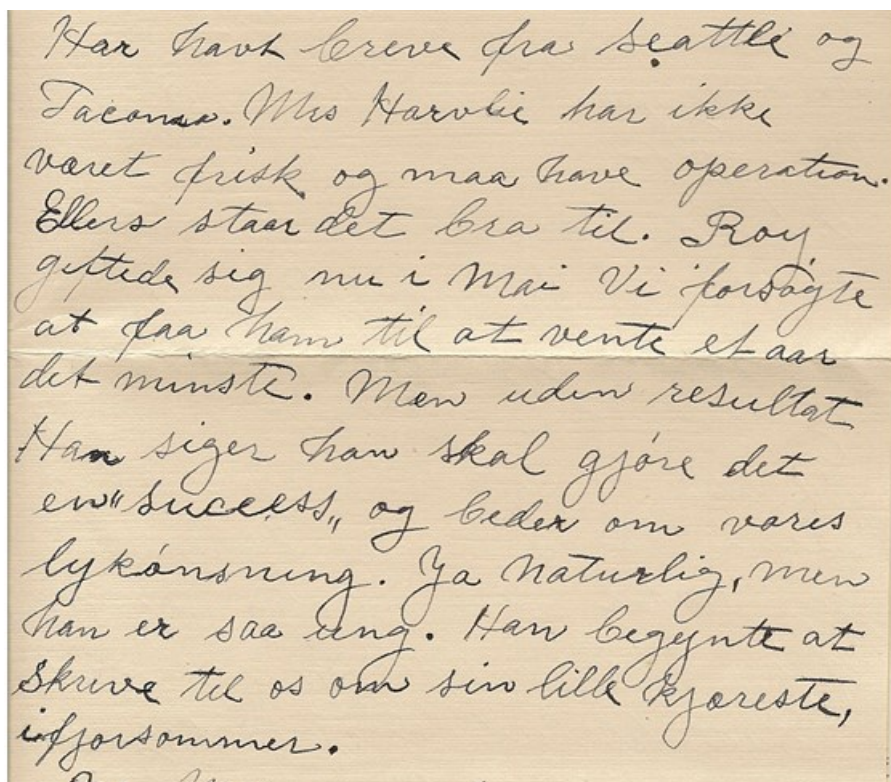 Har havt breve fra Seattle og
Tacoma. Mrs Harvlie har ikke
været frisk og maa have operation.
Ellers staar det bra til. Roy
giftede sig nu i Mai Vi forsøgte
at faa ham til at vente et aar
det minste. Men uden resultat
Han siger han skal gjøre det
en "success" og beder om vores
lykønsning. Ja naturlig, men
han er saa ung. Han begynte at
skrive til os om sin lille kjæreste,
ifjorsommer.